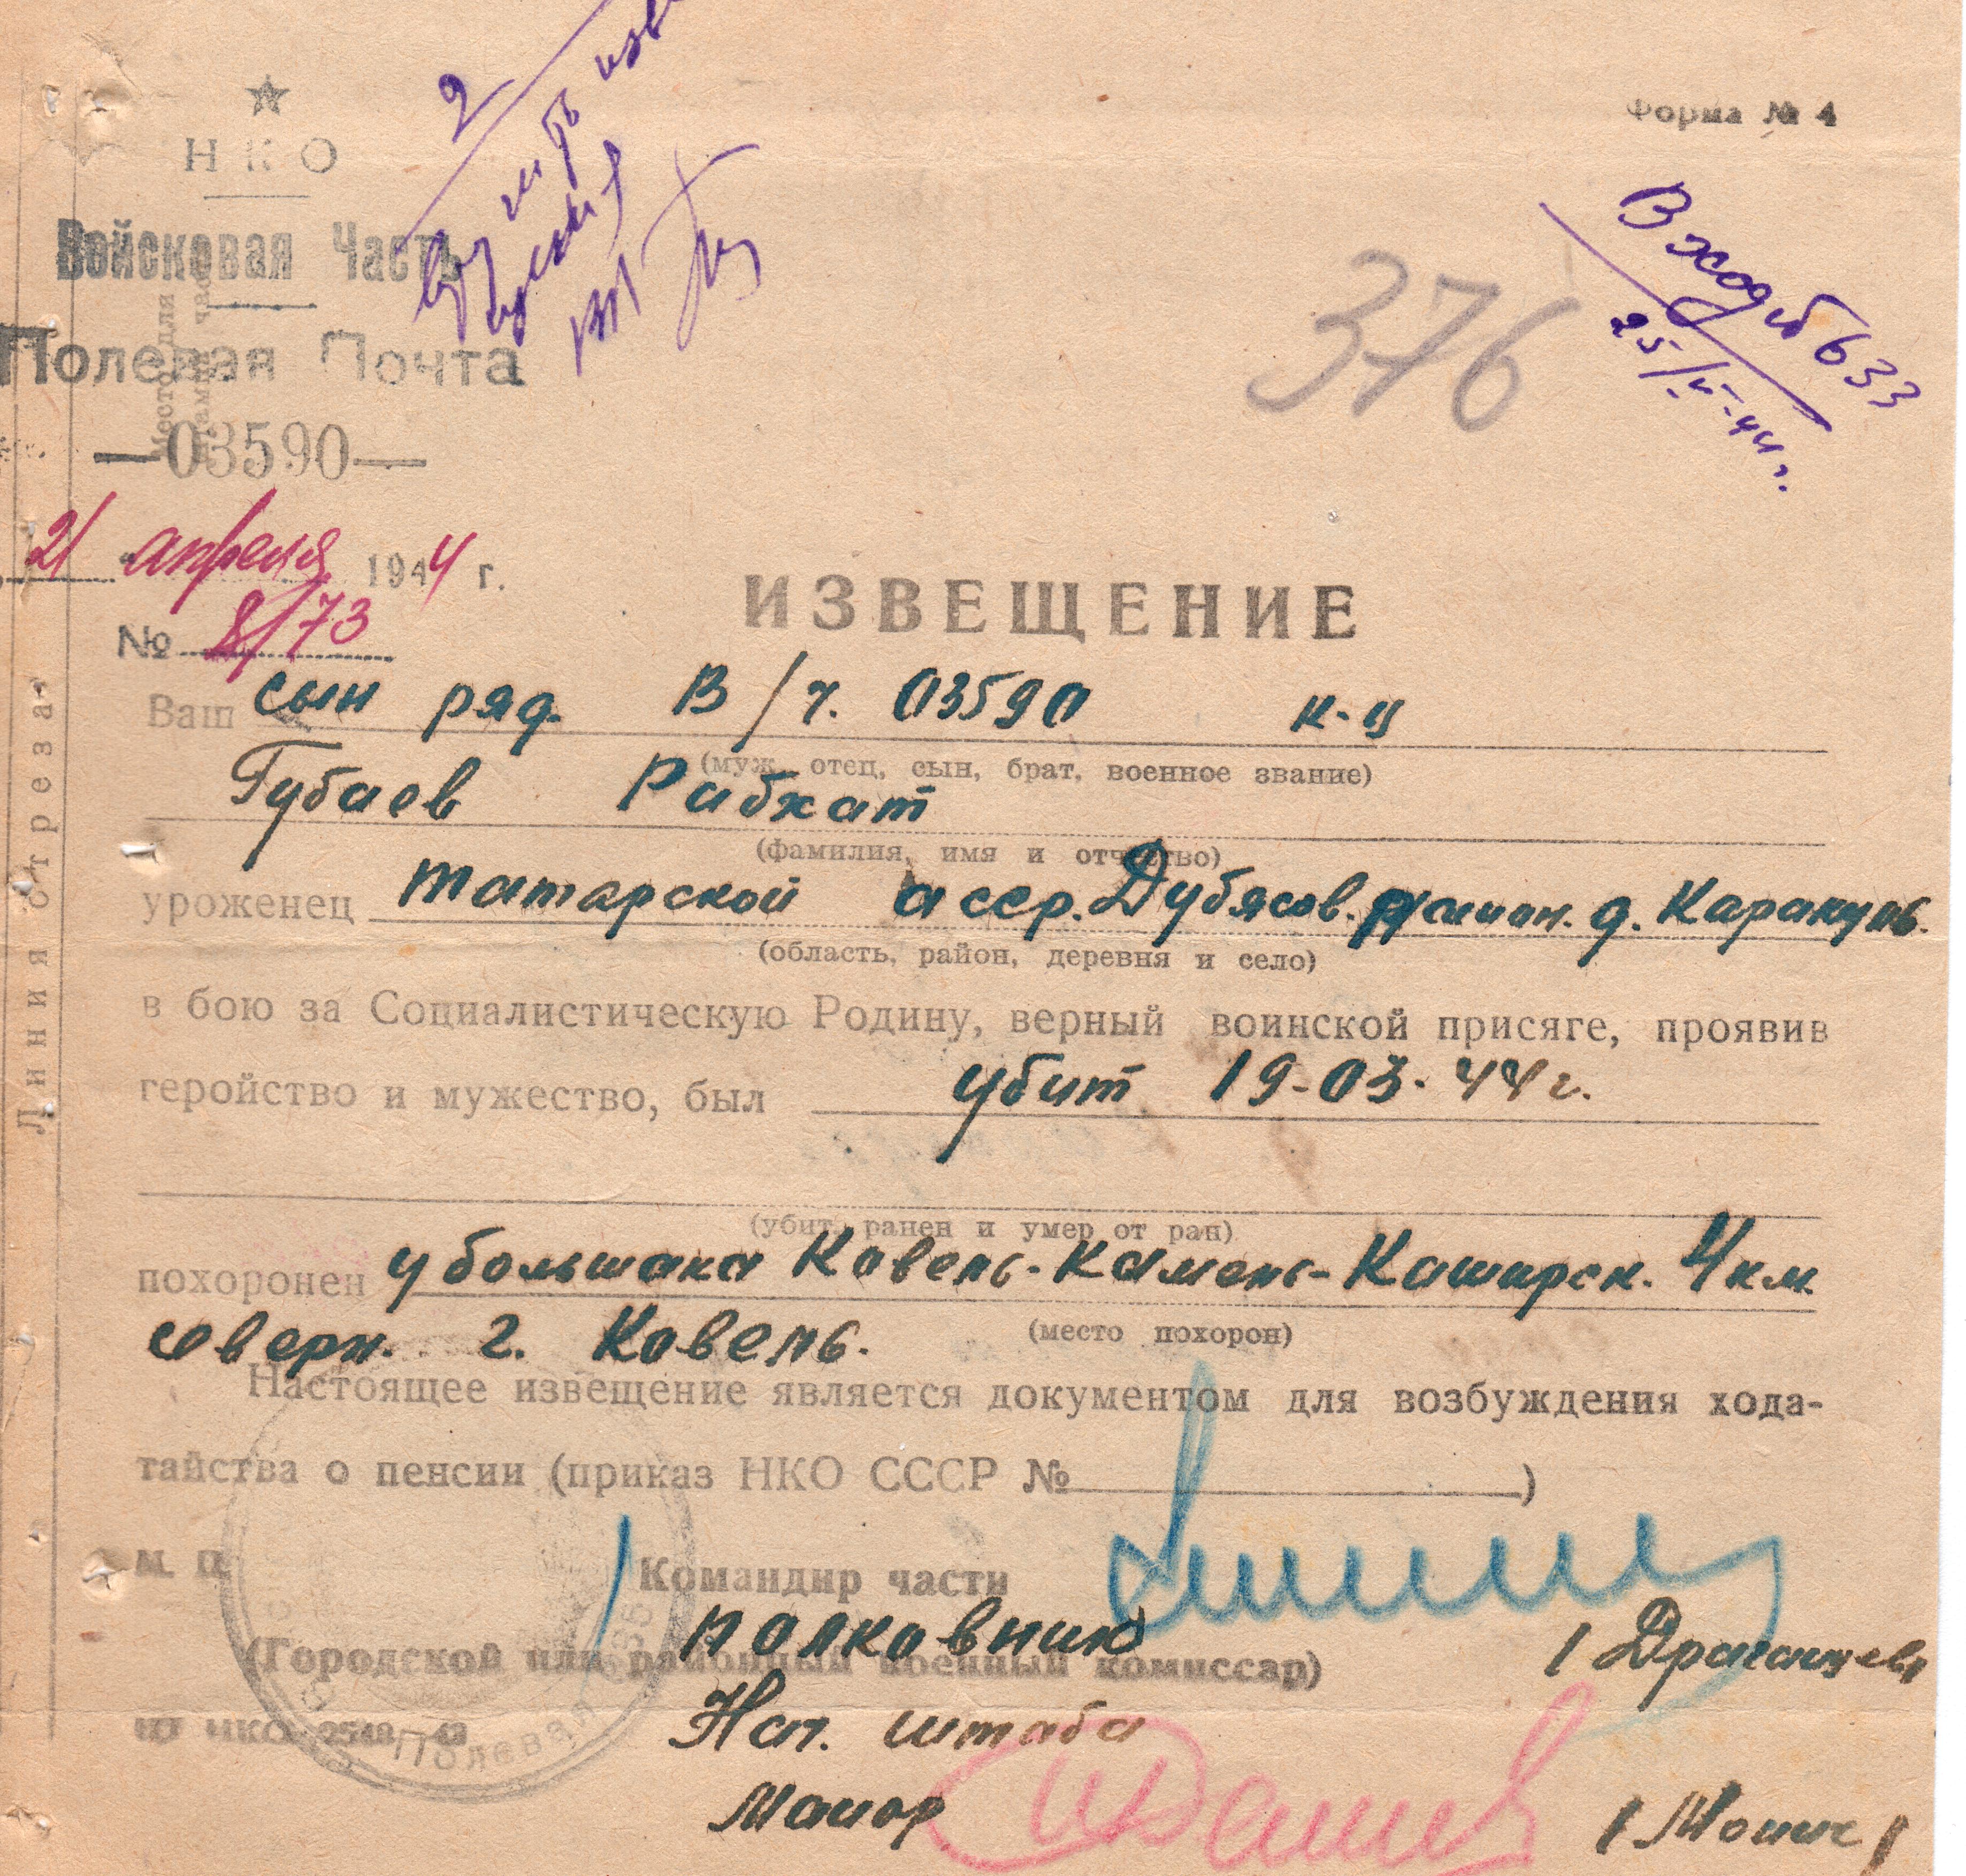 Форма № 4
НКО
Войсковая Часть
Полевая Почта
—03590—
Место для
штампа части
376
Входщ 633
25/V-44 г.
21 апреля 1944 г.
№ 8/73
ИЗВЕЩЕНИЕ
Ваш сын ряд. В/ч. 03590 к-ц
(муж, отец, сын, брат, военное звание)
Губаев Рабхат
(фамилия, имя и отчество)
уроженец татарской асср. Дубясов. район. д. Каракуль.
(область, район, деревня и село)
в бою за Социалистическую Родину, верный воинской присяге, проявив
геройство и мужество, был убит 19-03-44 г.
(убит, ранен и умер от ран)
похоронен у большака Ковель-Камень-Каширск. 4 км.
северн. г. Ковель.
(место похорон)
Настоящее извещение является документом для возбуждения хода-
тайства о пенсии (приказ НКО СССР № )
М. П.
Командир части
полковник
(Городской или районный военный комиссар)
Нач. штаба
Майор
Полевая
Линия отреза